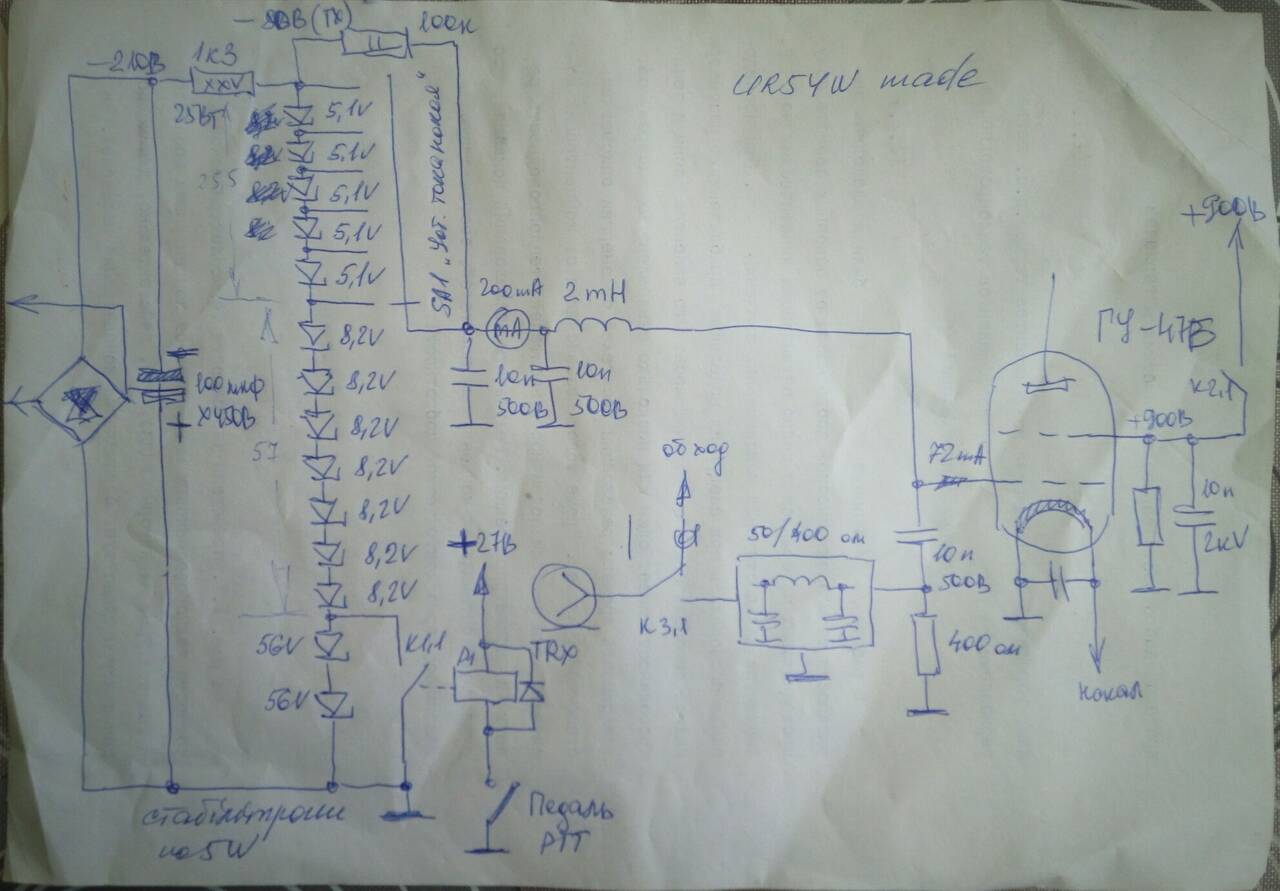 -80В (TX)
100к
-210В
1к3
XXV
25Вт
UR5YW made
5,1V
5,1V
5,1V
5,1V
5,1V
25,5
SA1 „Уст. тока покоя"
+900В
200mA
2mH
mA
8,2V
8,2V
8,2V
8,2V
8,2V
8,2V
8,2V
57
100мкф
х450В
+
10п
500В
10п
500В
ГУ-47Б
К2,1
+900В
72mA
обход
10п
2кV
+27В
50/400 ом
10п
500В
К3,1
TRX
400 ом
56V
56V
К1,1
Р1
накал
Педаль
PTT
стабільтрони
по 5W